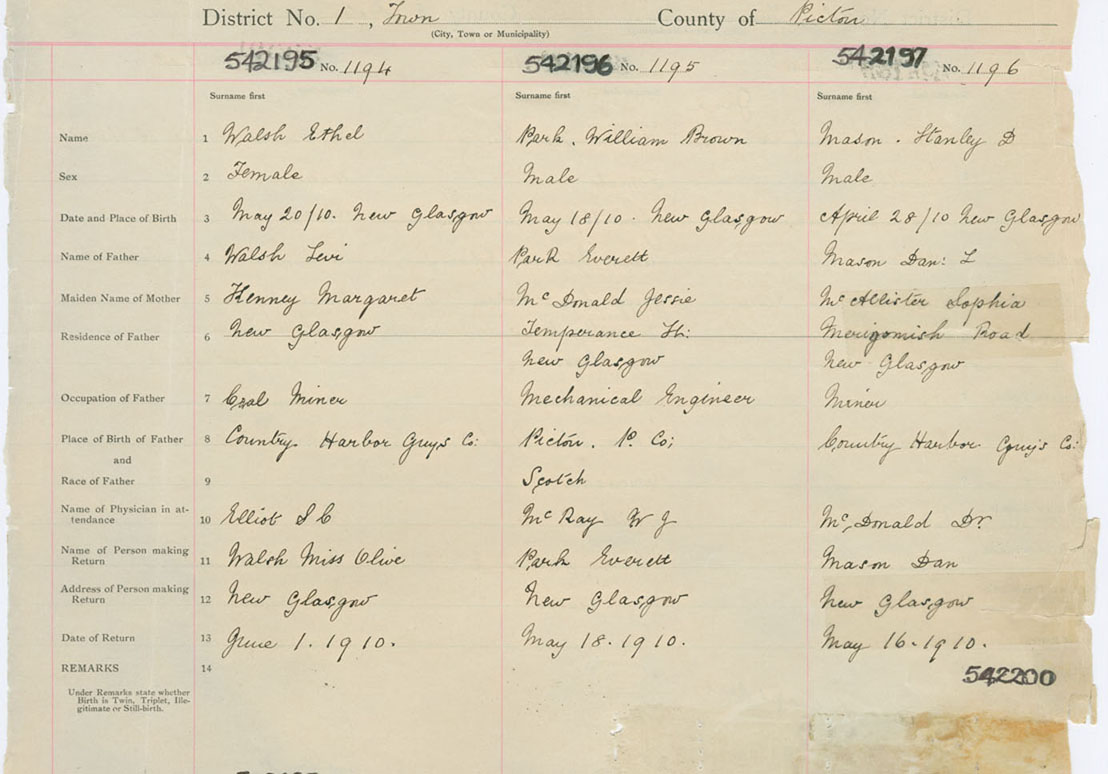 District No. 1, Town County of Pictou
(City, Town or Municipality)
542195 No. 1194 542196 No. 1195 542197 No. 1196
Surname first Surname first Surname first
Name 1 Walsh Ethel Park, William Brown Mason. Stanley D
Sex 2 Female Male Male
Date and Place of Birth 3 May 20/10. New Glasgow May 18/10. New Glasgow April 28/10 New Glasgow
Name of Father 4 Walsh Levi Park Everett Mason Dan: L
Maiden Name of Mother 5 Kenney Margaret McDonald Jessie McAllister Sophia
Residence of Father 6 New Glasgow Temperance St: Merigomish Road
New Glasgow New Glasgow
Occupation of Father 7 Coal Miner Mechanical Engineer Miner
Place of Birth of Father 8 Country Harbor Guys Co: Pictou. P. Co; Country Harbor Guys Co:
and
Race of Father 9 Scotch
Name of Physician in at-
tendance 10 Elliot S C McKay W J McDonald Dr.
Name of Person making
Return 11 Walsh Miss Olive Park Everett Mason Dan
Address of Person making
Return 12 New Glasgow New Glasgow New Glasgow
Date of Return 13 June 1. 1910. May 18. 1910. May 16-1910.
REMARKS 14
542200
Under Remarks state whether
Birth is Twin, Triplet, Ille-
gitimate or Still-birth.